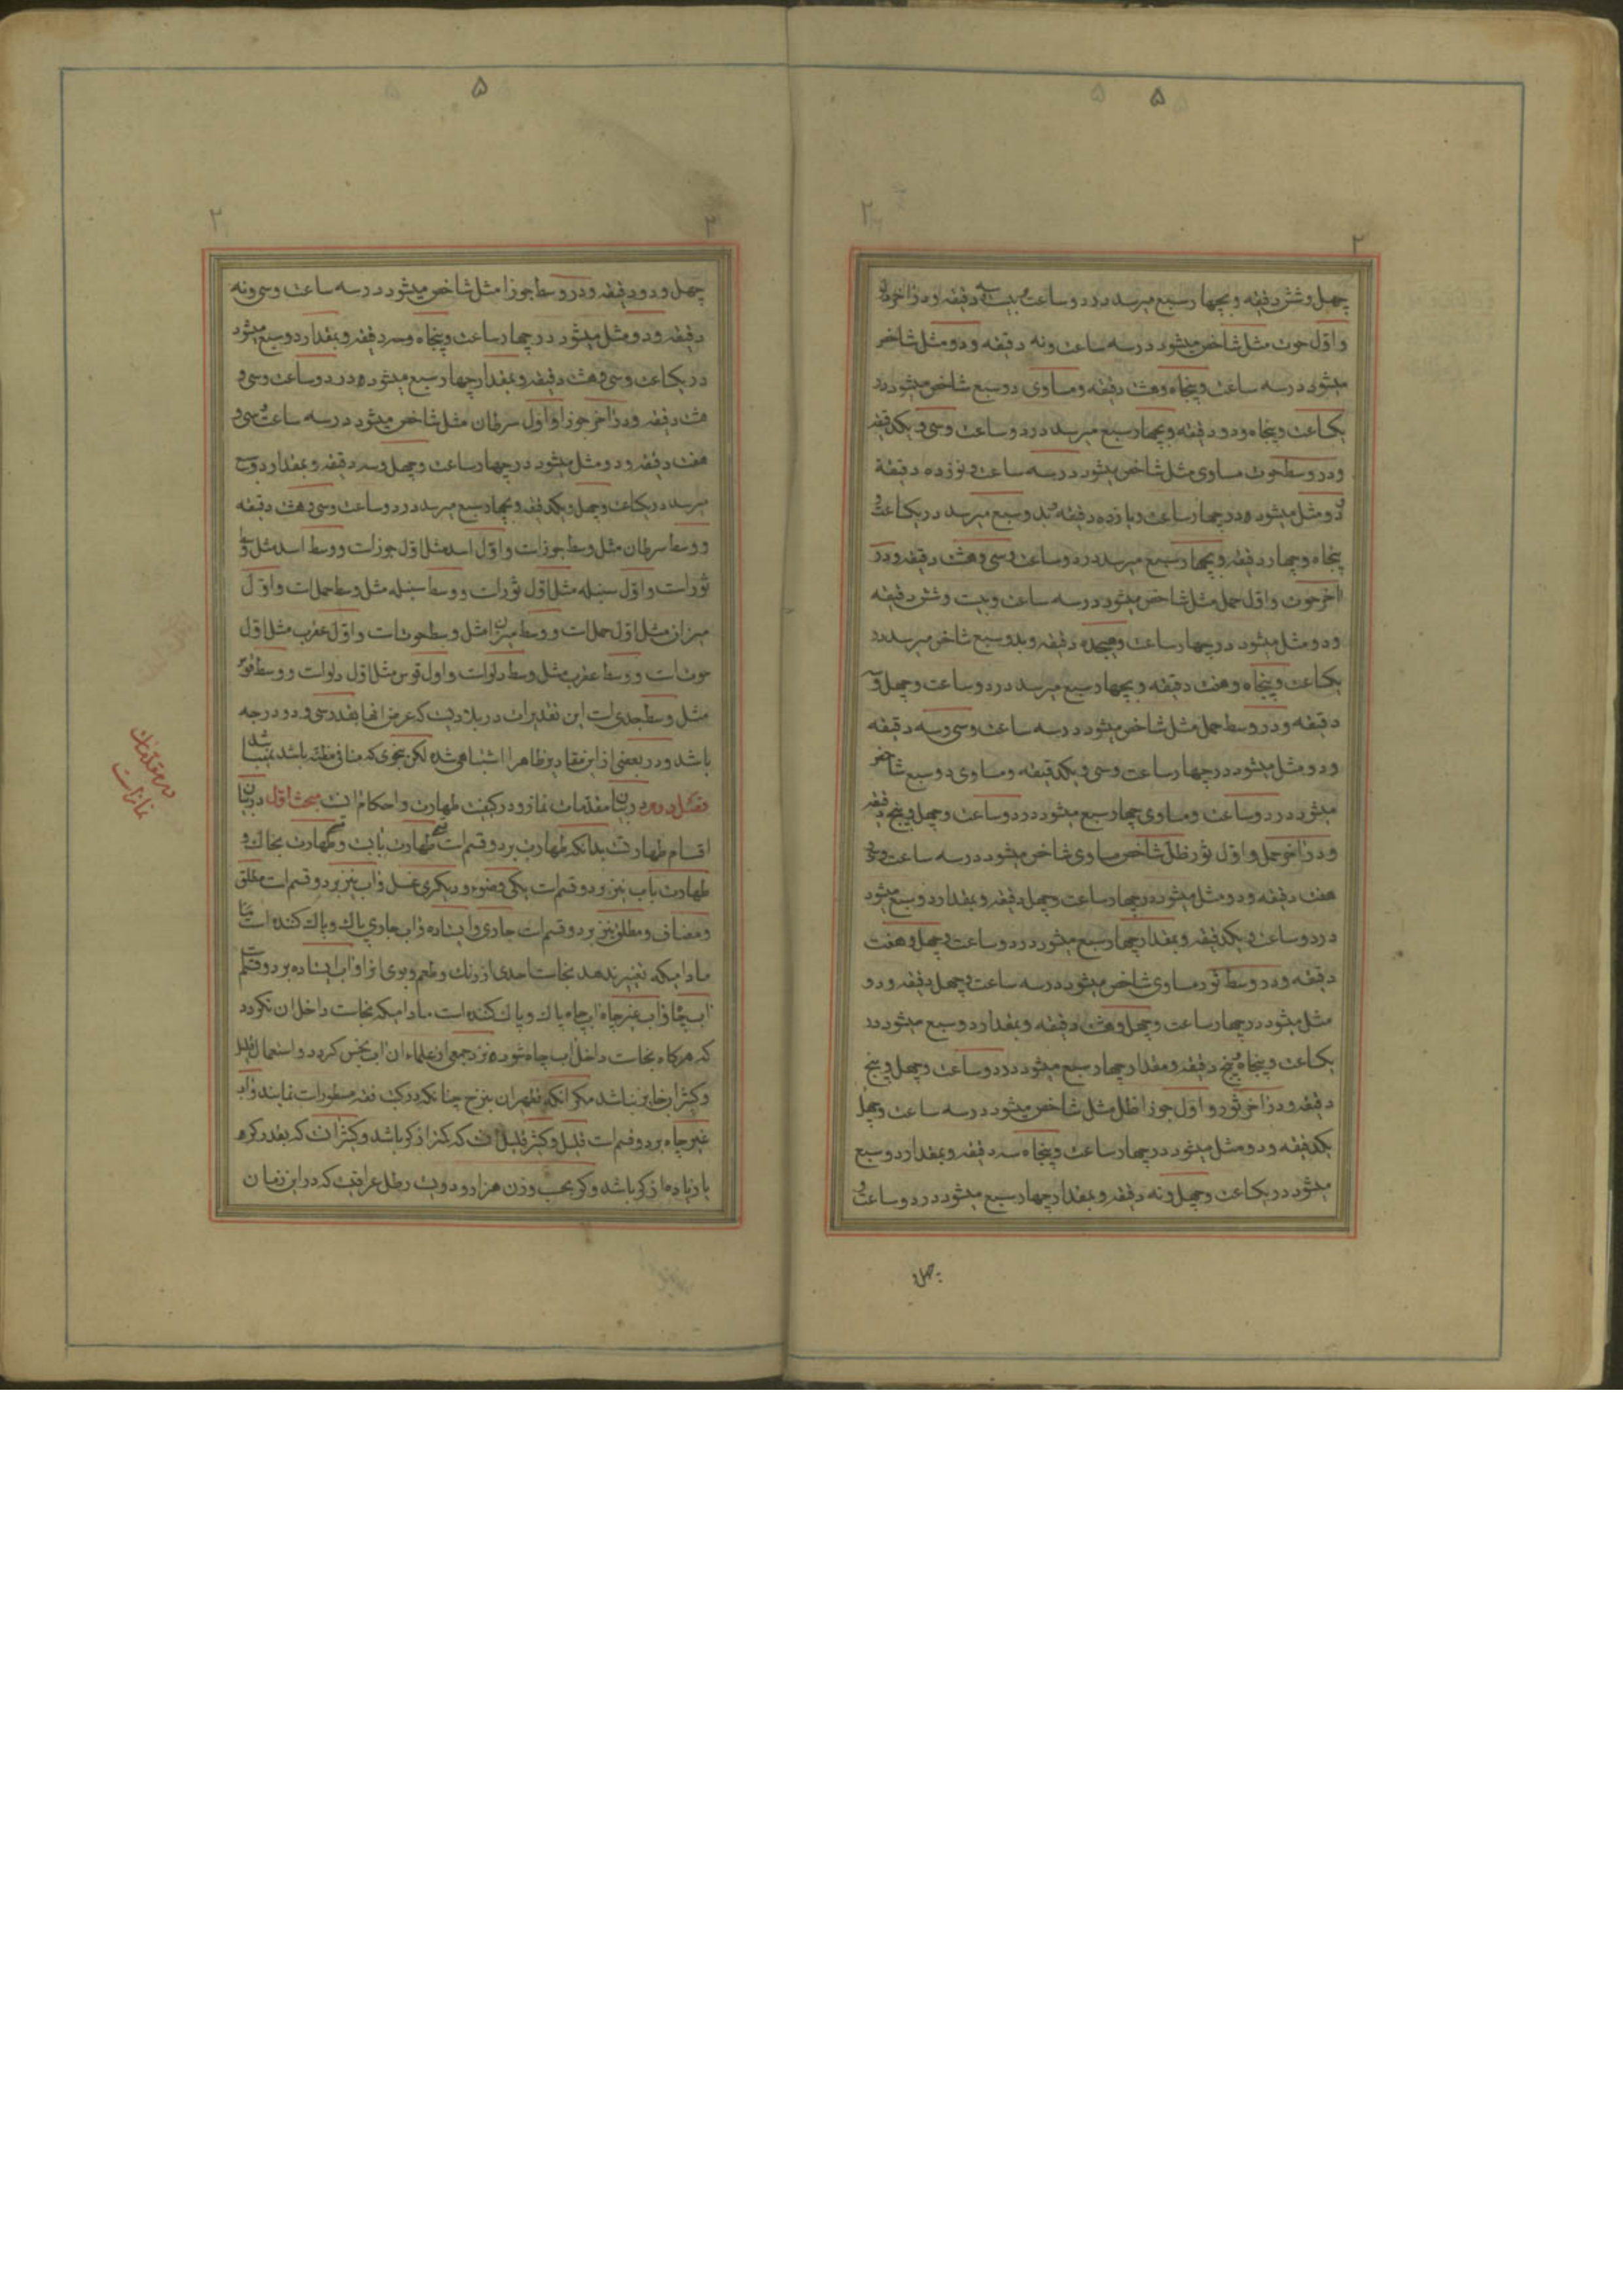 ۵
۲
۲
چهل و شش دقیقه و بچهار سبع میرسد در دو ساعت و بیست و سه دقیقه و در آخر دلو
و اول حوت مثل شاخص میشود در سه ساعت و نه دقیقه و دو مثل شاخص
میشود در سه ساعت و پنجاه و هشت دقیقه و مساوی دو سبع شاخص میشود در
یکساعت و پنجاه و دو دقیقه و بچهار سبع میرسد در دو ساعت و سی و یکدقیقه
و در وسط حوت مساوی مثل شاخص میشود در سه ساعت و نوزده دقیقه
و دو مثل میشود در چهار ساعت و یازده دقیقه و بدو سبع میرسد در یکساعت و
پنجاه و چهار دقیقه و بچهار سبع میرسد در دو ساعت و سی و هشت دقیقه و در
آخر حوت و اول حمل مثل شاخص میشود در سه ساعت و بیست و شش دقیقه
و دو مثل میشود در چهار ساعت و هیجده دقیقه و بدو سبع شاخص میرسد در
یکساعت و پنجاه و هفت دقیقه و بچهار سبع میرسد در دو ساعت و چهل و سه
دقیقه و در وسط حمل مثل شاخص میشود در سه ساعت و سی و سه دقیقه
و دو مثل میشود در چهار ساعت و سی و یکدقیقه و مساوی دو سبع شاخص
میشود در دو ساعت و مساوی چهار سبع میشود در دو ساعت و چهل و پنج دقیقه
و در آخر حمل و اول ثور ظل شاخص مساوی شاخص میشود در سه ساعت و سی و
هفت دقیقه و دو مثل میشود در چهار ساعت و چهل دقیقه و بمقدار دو سبع میشود
در دو ساعت و یکدقیقه و بمقدار چهار سبع میشود در دو ساعت و چهل و هفت
دقیقه و در وسط ثور مساوی شاخص میشود در سه ساعت و چهل دقیقه و دو
مثل میشود در چهار ساعت و چهل و هشت دقیقه و بمقدار دو سبع میشود در
یکساعت و پنجاه و پنج دقیقه و مقدار چهار سبع میشود در دو ساعت و چهل و پنج
دقیقه و در آخر ثور و اول جوزا ظل مثل شاخص میشود در سه ساعت و چهل
یکدقیقه و دو مثل میشود در چهار ساعت و پنجاه سه دقیقه و بمقدار دو سبع
میشود در یکساعت و چهل و نه دقیقه و بمقدار چهار سبع میشود در دو ساعت و
چهل و
۵
۲
۲
چهل و دو دقیقه و در وسط جوزا مثل شاخص میشود در سه ساعت و سی و نه
دقیقه و دو مثل میشود در چهار ساعت و پنجاه و سه دقیقه و بمقدار دو سبع میشود
در یکساعت و سی و هشت دقیقه و بمقدار چهار سبع میشود در دو ساعت و سی و
هشت دقیقه و در آخر جوزا و اول سرطان مثل شاخص میشود در سه ساعت و سی و
هفت دقیقه و دو مثل میشود در چهار ساعت و چهل و سه دقیقه و بمقدار دو سبع
میرسد در یکساعت و چهل و یکدقیقه و بچهار سبع میرسد در دو ساعت و سی و هشت دقیقه
و وسط سرطان مثل وسط جوز است و اول اسد مثل اول جوز است و وسط اسد مثل وسط
ثور است و اول سنبله مثل اول ثور است و وسط سنبله مثل وسط حمل است و اول
میزان مثل اول حمل است و وسط میزان مثل وسط حوت است و اول عقرب مثل اول
حوت است و وسط عقرب مثل وسط دلو است و اول قوس مثل اول دلو است و وسط قوس
مثل وسط جدی است این تقدیرات در بلادیست که عرض انها بقدر سی و دو درجه
باشد و در بعضی از این مقادیر ظاهرا اشتباهی شده لکن بنحوی که منافی مظنه باشد نمیباشد
فصل دوم در بیان مقدمات نماز و در کیفیت طهارت و احکام آن است مبحث اول در بیان
اقسام طهارتست بدانکه طهارت بر دو قسم است طهارت بآبست و طهارت بخاک و
طهارت بآب نیز بر دو قسم است یکی وضوء و دیگری غسل و آب نیز بر دو قسم است مطلق
و مضاف و مطلق نیز بر دو قسم است جاری و ایستاده و آب جاری پاک و پاک کننده است
مادامیکه تغییر ندهد نجاست احدی از رنک و طعم و بوی انرا و آب ایستاده بر دو قسم است
آب چاه و آب غیر چاه آب چاه پاک و پاک کننده است مادامیکه نجاست داخل ان نکردد
که هرکاه نجاست داخل آب چاه شود نزد جمعی از علماء ان آب نجس کردد و استعمال قلیل
و کثیر ان جایز نباشد مکر انکه تطهر ان بنزح چنانکه در کتب فقه مسطور است نمایند و آب
غیر چاه بر دو قسم است قلیل و کثیر قلیل آنست که کمتر از کر باشد و کثیر آنست که بقدر کر
یا زیاده از کر باشد و کر بحسب وزن هزار و دویست رطل عراقیست که در این زمان
در مقدمات
نماز است